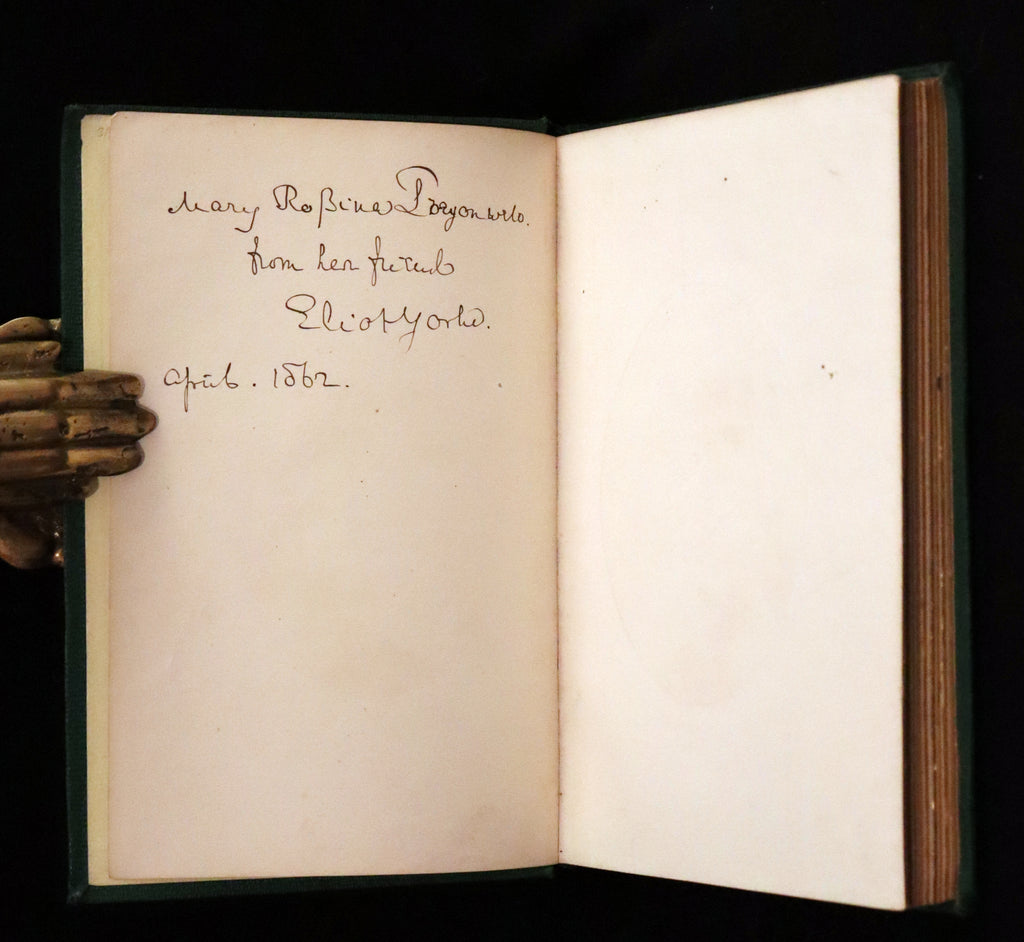 Mary Roſsina
from her friend
Eliot Yorke.
April. 1862.